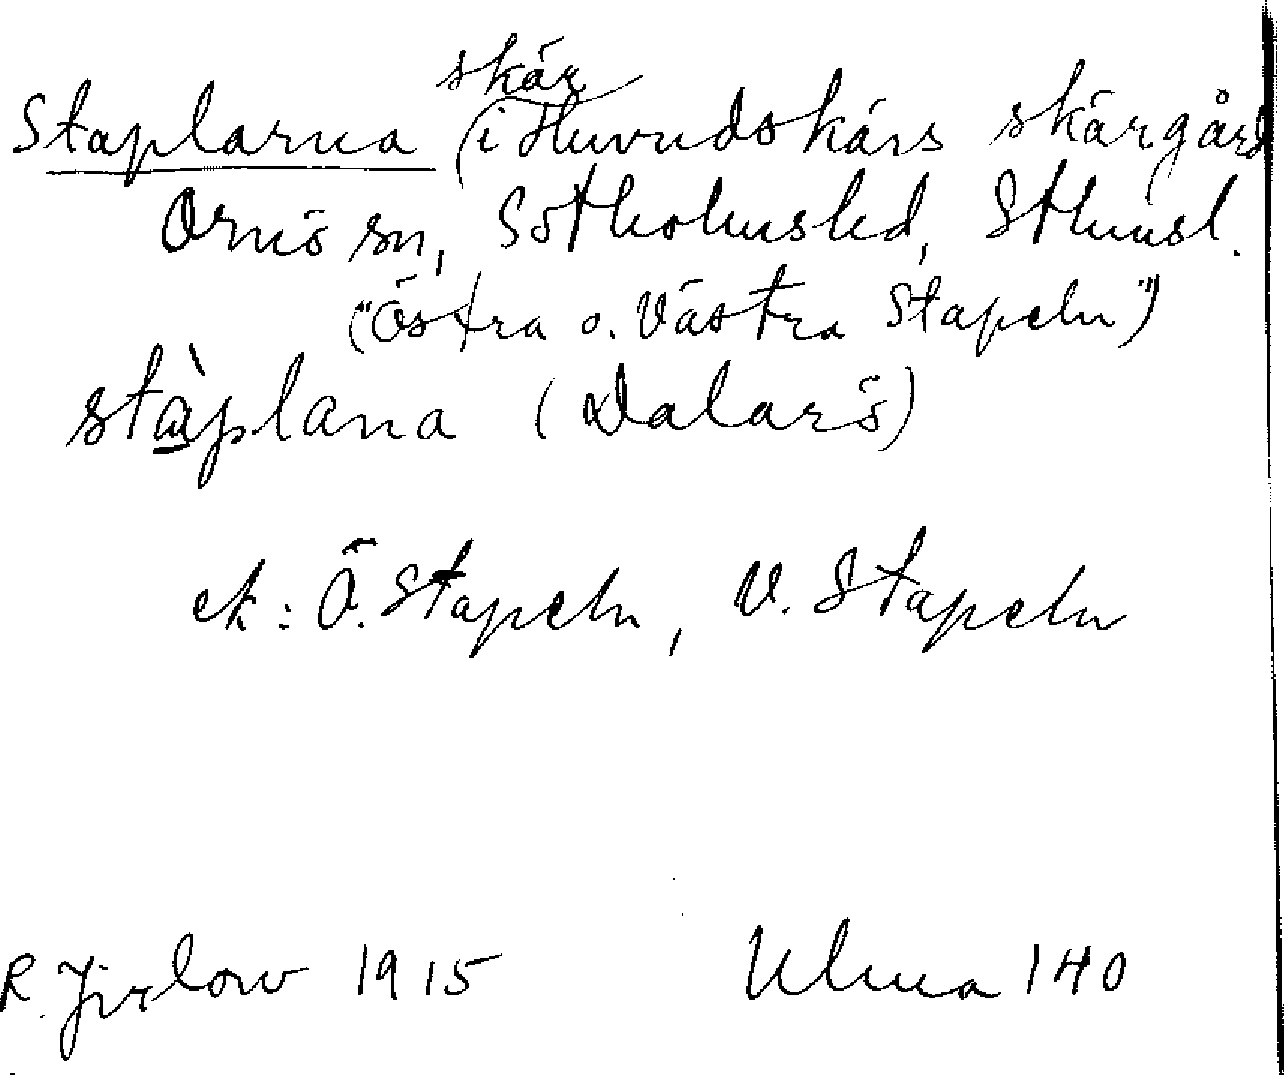 skär
Staplarna (i Huvudskärs skärgård
Ornö sn, Sotholmsled, Sthmsl.
("Östra o. Västra Stapeln")
stàplana (Dalarö)
ek: Ö. Stapeln, V. Stapeln
R. Jirlow 1915 Ulma 140